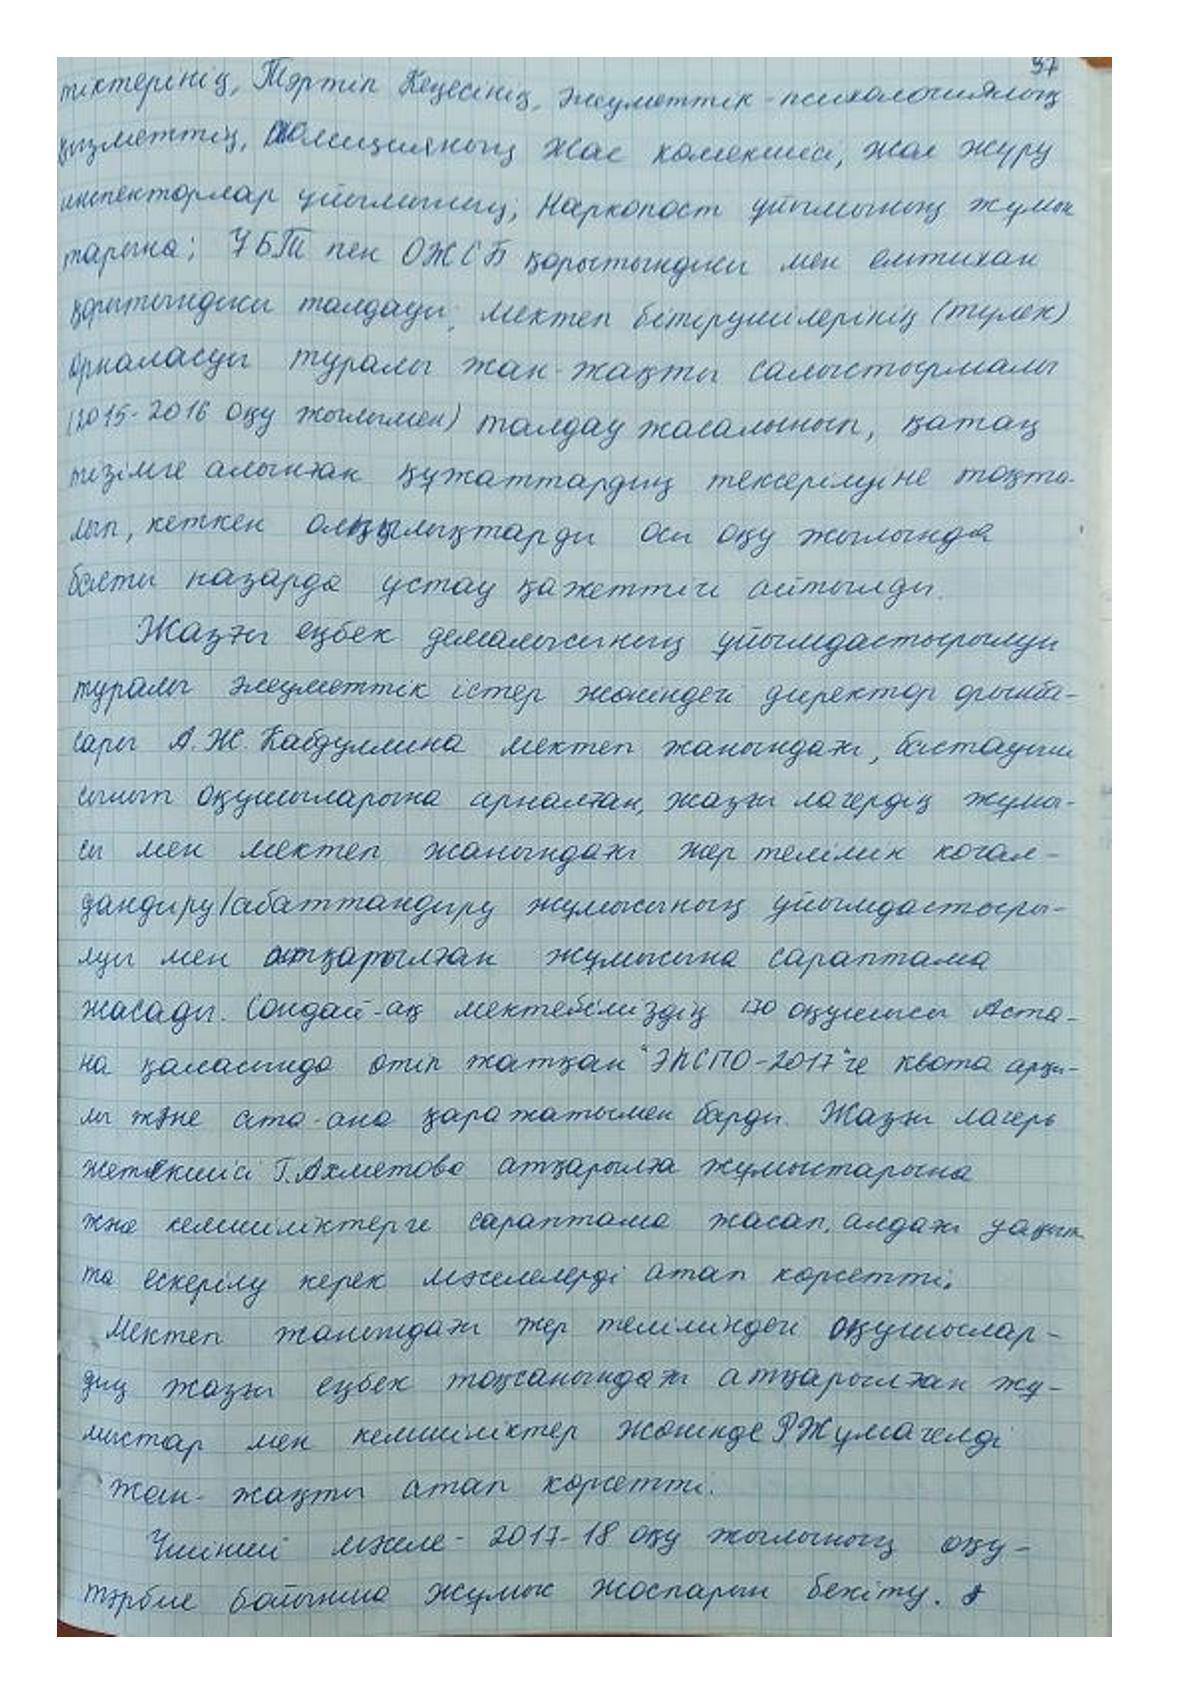 37
тіктерінің, Тәртіп Кеңесінің, әлеуметтік-психологиялық
қызметтің, Полицияның жас көмекшісі, жас жүру
инспекторлар ұйымының, Наркопост ұйымының жұмыс
тарына; ҰБТ пен ОЖСБ қорытындысы мен емтихан
қорытындысы талдауы; мектеп бітірушілерінің (түлек)
орналасуы туралы жан-жақты салыстырмалы
(2015-2016 оқу жылымен) талдау жасалынып, қатаң
тізімге алынған құжаттардың тексерілуіне тоқта-
лып, кеткен олқылықтарды осы оқу жылында
басты назарда ұстау қажеттігі айтылды.
Жазғы еңбек демалысының ұйымдастырылуы
туралы әлеуметтік істер жөніндегі директор орынба-
сары А.Ж. Кабдуллина мектеп жанындағы, бастауыш
сынып оқушыларына арналған, жазғы лагердің жұмы-
сы мен мектеп жанындағы жер телімін көгал-
дандыру/абаттандыру жұмысының ұйымдастыры-
луы мен атқарылған жұмысына сараптама
жасады. Сондай-ақ мектебіміздің 170 оқушысы Аста-
на қаласында өтіп жатқан "ЭКСПО-2017"ге квота арқы-
лы және ата-ана қаражатымен барды. Жазғы лагерь
жетекшісі Г.Ахметова атқарылға жұмыстарына
жне кемшіліктерге сараптама жасап, алдағы уақыт
та ескерілу керек мәселелерді атап көрсетті.
Мектеп жанындағы жер теліміндегі оқушылар-
дың жазғы еңбек тоқсанындағы атқарылған жұ-
мыстар мен кемшіліктер жөнінде Р.Жұмагелді
жан-жақты атап көрсетті.
Үшінші мәселе - 2017-18 оқу жылының оқу-
тәрбие бойынша жұмыс жоспарын бекіту.